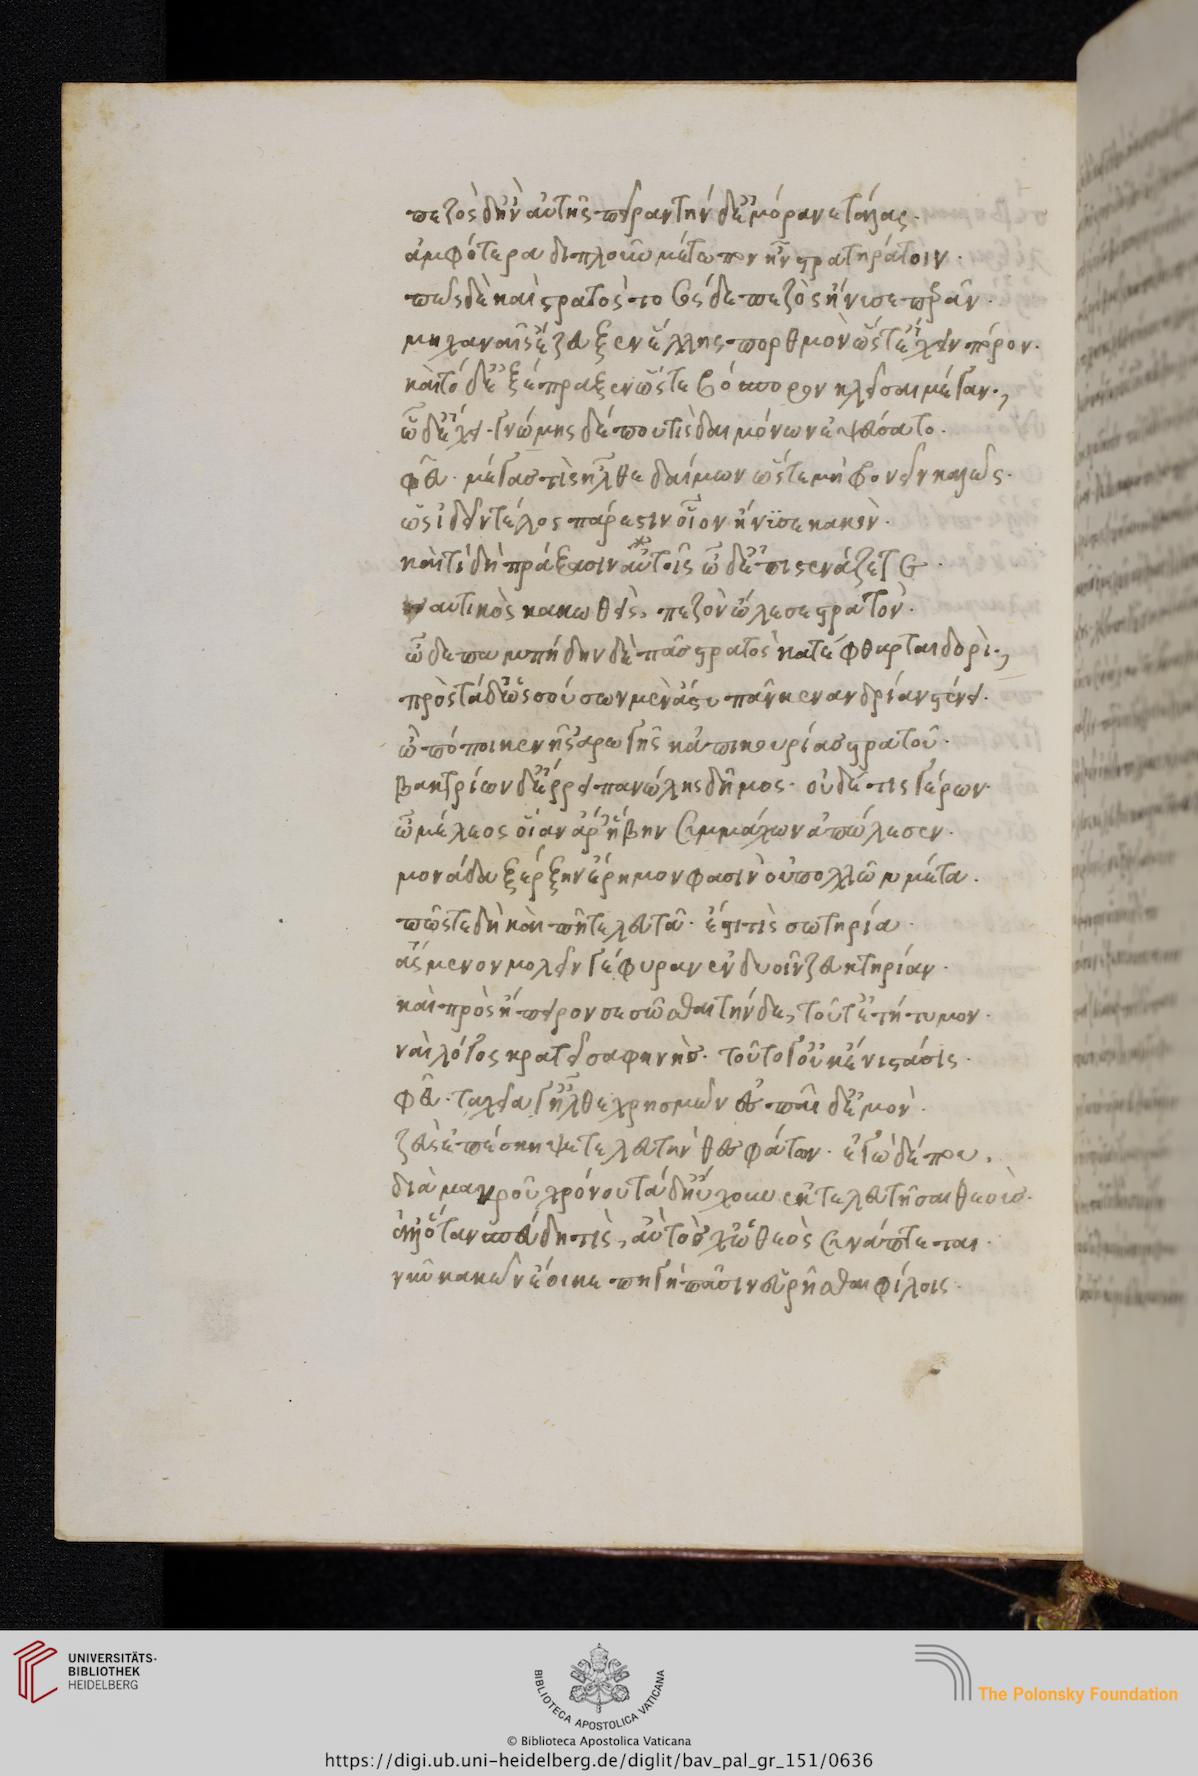 πεζὸς δὴν αὐτῆς πεῖραν τήνδ' ἐμώρανε τάλας.
ἀμφότερα διπλοῦν μέτωπον ἦν στρατηλάτοιν.
πῶς δὲ καὶ στρατὸς τοσόςδε πεζὸς ἤνισε περᾶν.
μηχαναῖς ἔζευξεν ἕλλης πορθμὸν ὥστ' ἔχειν πόρον.
καὶ τόδ' ἐξέπραξεν ὥστε βόσπορον κλεῖσαι μέγαν.
ὧδ' ἔχει. γνώμης δέ πού τις δαιμόνων ἐψεύσατο.
φεῦ. μέγας τὶς ἦλθε δαίμων ὥστε μὴ φρονεῖν καλῶς.
ὡς ἰδεῖν τέλος πάρεστιν οἷον ἤνϊσε κακόν.
καὶ τί δὴ πράξασιν αὐτοῖς ὧδ' ἐπιστενάζετε.
ναυτικὸς κακωθεὶς, πεζὸν ὤλεσε στρατόν.
ὧδε παμπήδην δὲ πᾶς στρατὸς κατέφθαρται δορὶ.
πρὸς τάδ' ὡς σούσων μὲν ἄστυ πᾶν κενανδρίαν στένει.
ὢ πόποι κενῆς ἀρωγῆς κἀπικουρίας στρατοῦ.
βακτρίων δ' ἔρρει πανώλης δῆμος. οὐδέ τις γέρων.
ὦ μέλεος οἵαν ἄρ' ἥβην συμμάχων ἀπώλεσεν.
μονάδα ξέρξην ἔρημον φασὶν οὐ πολλῶν μέτα.
πῶς τε δὴ καὶ ποῖ τελευτᾶν. ἔστι τὶς σωτηρία.
ἄσμενον μολεῖν γέφυραν ἐν δυοῖν ζευκτηρίαν.
καὶ πρὸς ἤπειρον σεσῶσθαι τήνδε, τοῦτ' ἐτήτυμον.
ναὶ λόγος κρατεῖ σαφηνής. τοῦτο γ' οὐκ ἔνι στάσις.
φεῦ. ταχεῖα γ' ἦλθε χρησμῶν εὖ παῖ δ' ἐμὸν.
ζεὺς ἐπέσκηψε τελευτὴν θεσφάτων. ἐγὼ δέ που.
διὰ μακροῦ χρόνου τάδ' ηὔχουν ἐκτελευτήσαι θεοὺς.
ἀλλ' ὅταν σπεύδη τὶς, αὐτὸς χὠ θεὸς συνάπτεται.
νῦν κακῶν ἔοικε πηγὴ πᾶσιν εὑρῆσθαι φίλοις.
UNIVERSITÄTS-
BIBLIOTHEK
HEIDELBERG
BIBLIOTECA APOSTOLICA VATICANA
The Polonsky Foundation
© Biblioteca Apostolica Vaticana
https://digi.ub.uni-heidelberg.de/diglit/bav_pal_gr_151/0636